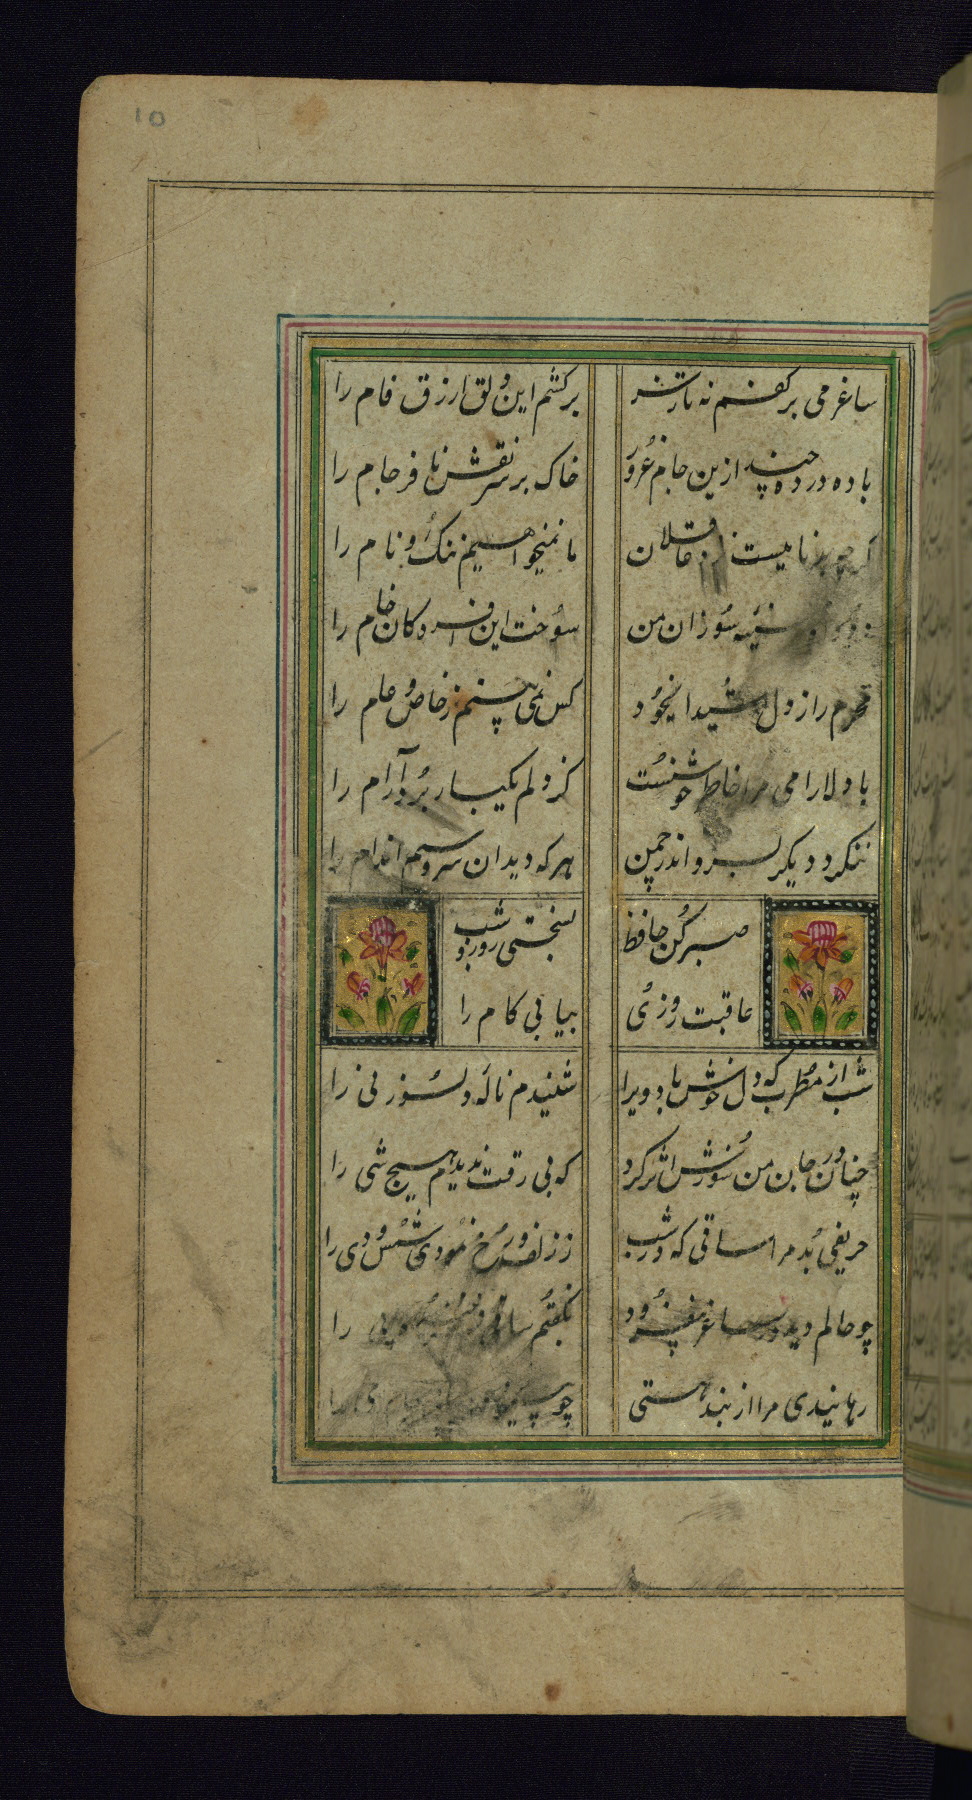 10
ساغر می بر کفم نه تا ز بر
برکشم این دلق ازرق فام را
باده در ده چند ازین جام غرور
خاک بر سر نقش نافرجام را
گرچه بدنامیست نزد عاقلان
ما نمیخواهیم ننگ و نام را
سینه سوزان من
سوخت این افسردکان خام را
محرم راز دل شیدا یخود
کس نمی پینم ز خاص و عام را
با دلارامی مرا خاطر خوشست
کز دلم یکبار برد آرام را
ننکرد دیکر بسرو اندر چمن
هرکه دید ان سرو سیم اندام را
صبر کن حافظ
بسختی روز و شب
عاقبت روزی
بیابی کام را
شب از مطرب که دل خوش باد ویرا
شنیدم ناله دلسوز نی را
چنان در جان من سوزش اثر کرد
که بی رقت ندیدم هیچ شی را
حریفی بد مرا ساقی که در شب
ز زلف و رخ نمودی شمس و دی را
چو حالم دید در ساغر بیفزود
بگفتم ساقی را
رهانیدی مرا از بند هستی
چو پیمودی جام می را